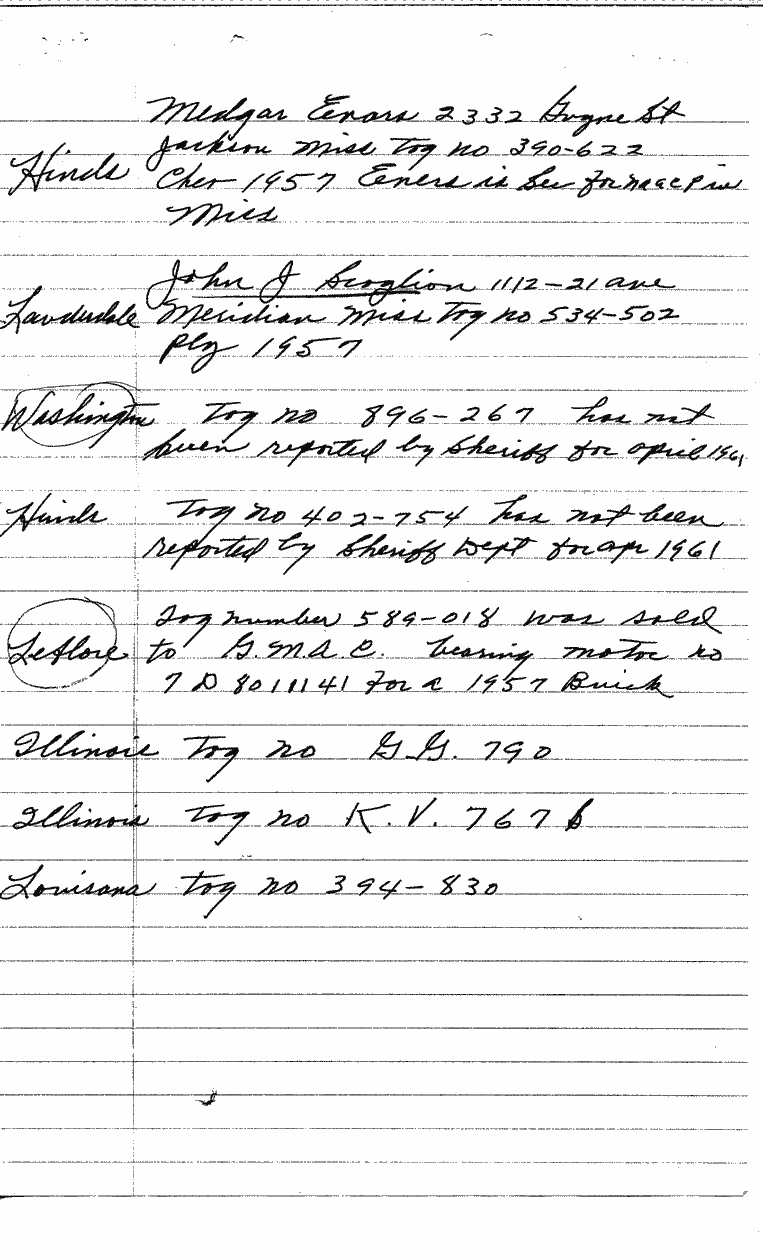 Medgar Evars 2332 Guyne St
Jackson Miss Tog no 390-622
Hinds Chev 1957 Evers is Sec for naacp in
Miss
John J Scoglion 1112-21 ave
Lauderdale Meridian Miss Tog no 534-502
Ply 1957
Washington Tog no 896-267 has not
been reported by Sheriff for april 1961
Hinds Tog no 402-754 has not been
reported by Sheriff Dept for apr 1961
Tog number 589-018 was sold
Leflore to G.M.A.C. bearing motor no
7 D 8011141 For a 1957 Buick
Illinois Tog no G.G. 790
Illinois Tog no K.V. 767
Louisana Tog no 394-830